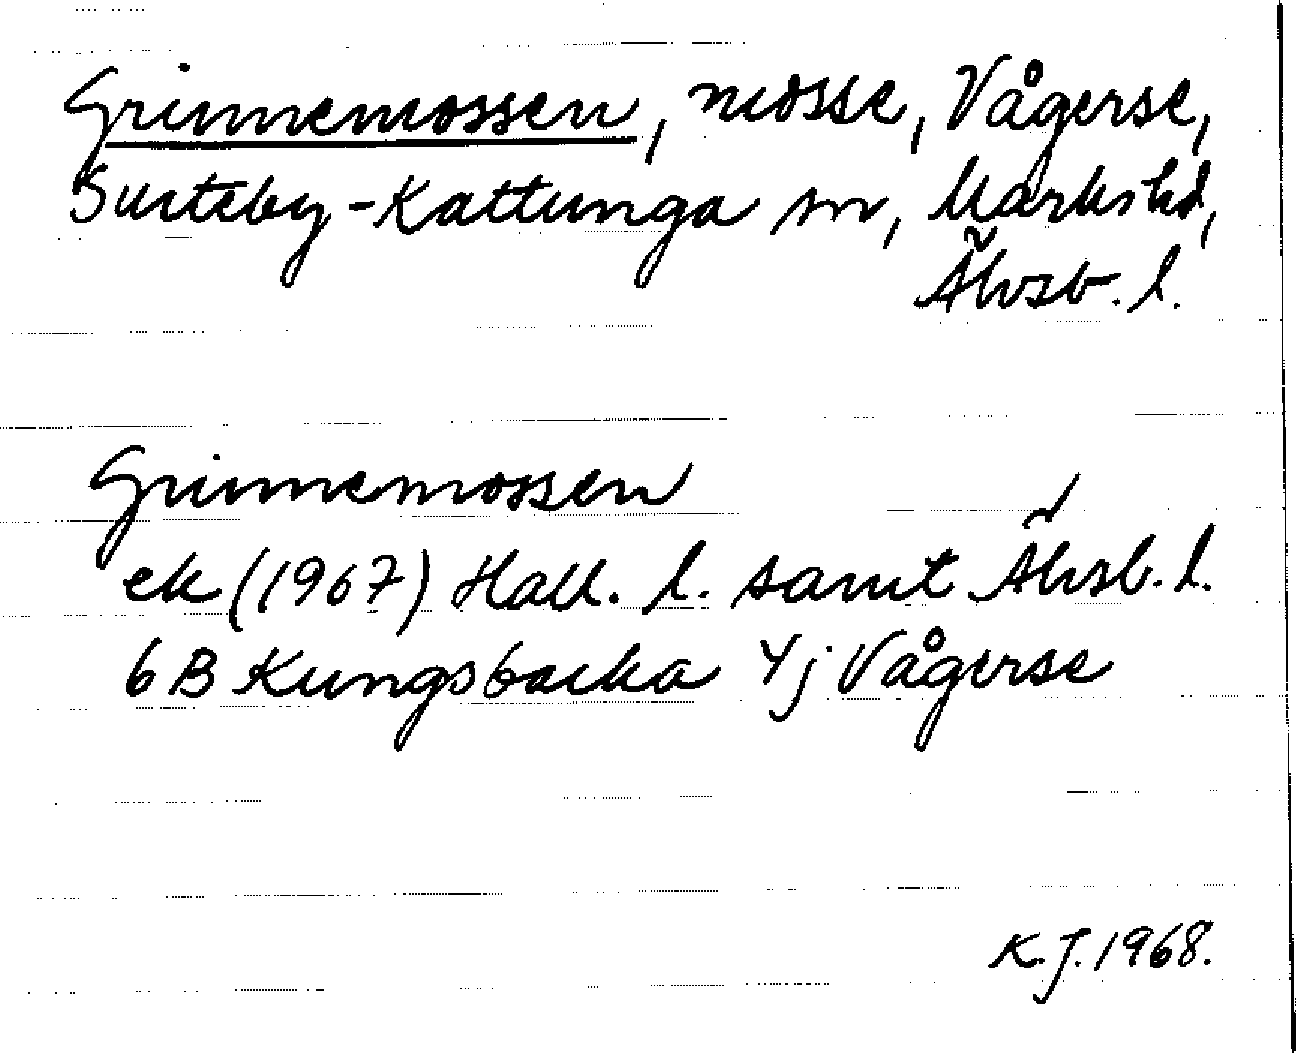 Grinnemossen, mosse, Vågerse,
Surteby-Kattunga sn, Marks hd,
Älvsb. l.
Grinnemossen
ek (1967) Hall. l. samt Älvsb. l.
6B Kungsbacka 4j Vågerse
K.J. 1968.